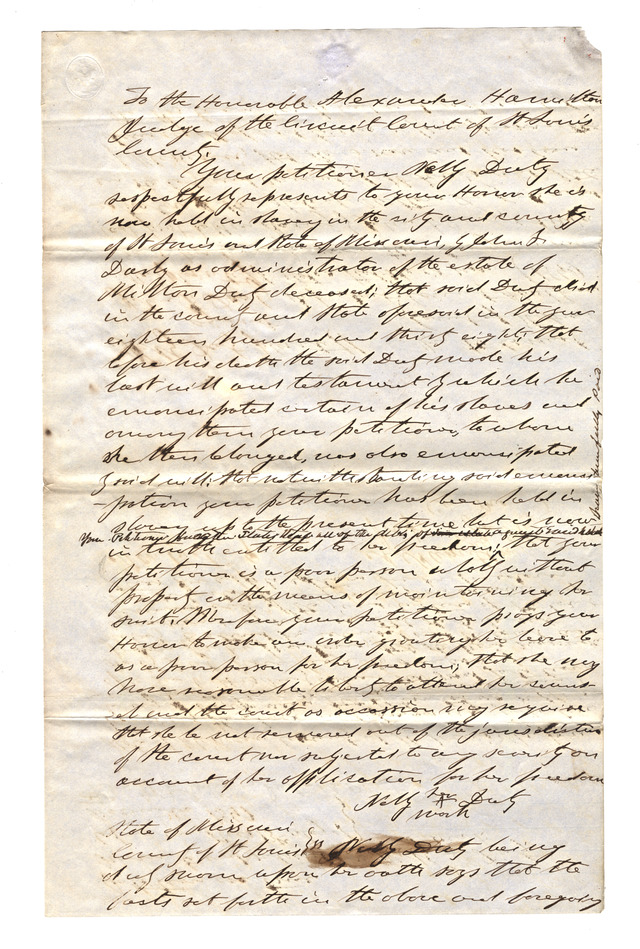 To the Honorable Alexander Hamilton
Judge of the Circuit Court of St Louis
County.
Your petitioner Nelly Duty
respectfully represents to your Honor she is
now held in slavery in the city and county
of St Louis and State of Missouri, by John F.
Darby as administrator of the estate of
Milton Duty deceased; that said Duty died
in the county and State aforesaid in the year
eighteen hundred and thirty eight; that
before his death the said Duty made his
last will and testament by which he
emancipated certain of his slaves and
among them your petitioner, to whom
she then belonged, was also emancipated
by said will; that notwithstanding said emanci
-pation your petitioner has been held in
slavery up to the present time but is now
Your Petitioner further States that all of the debts of
in truth entitled to her freedom; that your
petitioner is a poor person wholly without
property or the means of maintaining her
suit. Wherefore your petitioner prays your
Honor to make an order granting her leave to
as a poor person for her freedom; that she may
have reasonable liberty to attend her couns-
el and the court as occasion may require
that she be not removed out of the jurisdiction
of the court nor subjected to any severity on
account of her application for her freedom
Nelly her X mark Duty
State of Missouri
County of St Louis } ss Nelly Duty being
duly sworn upon her oath says that the
facts set forth in the above and foregoing